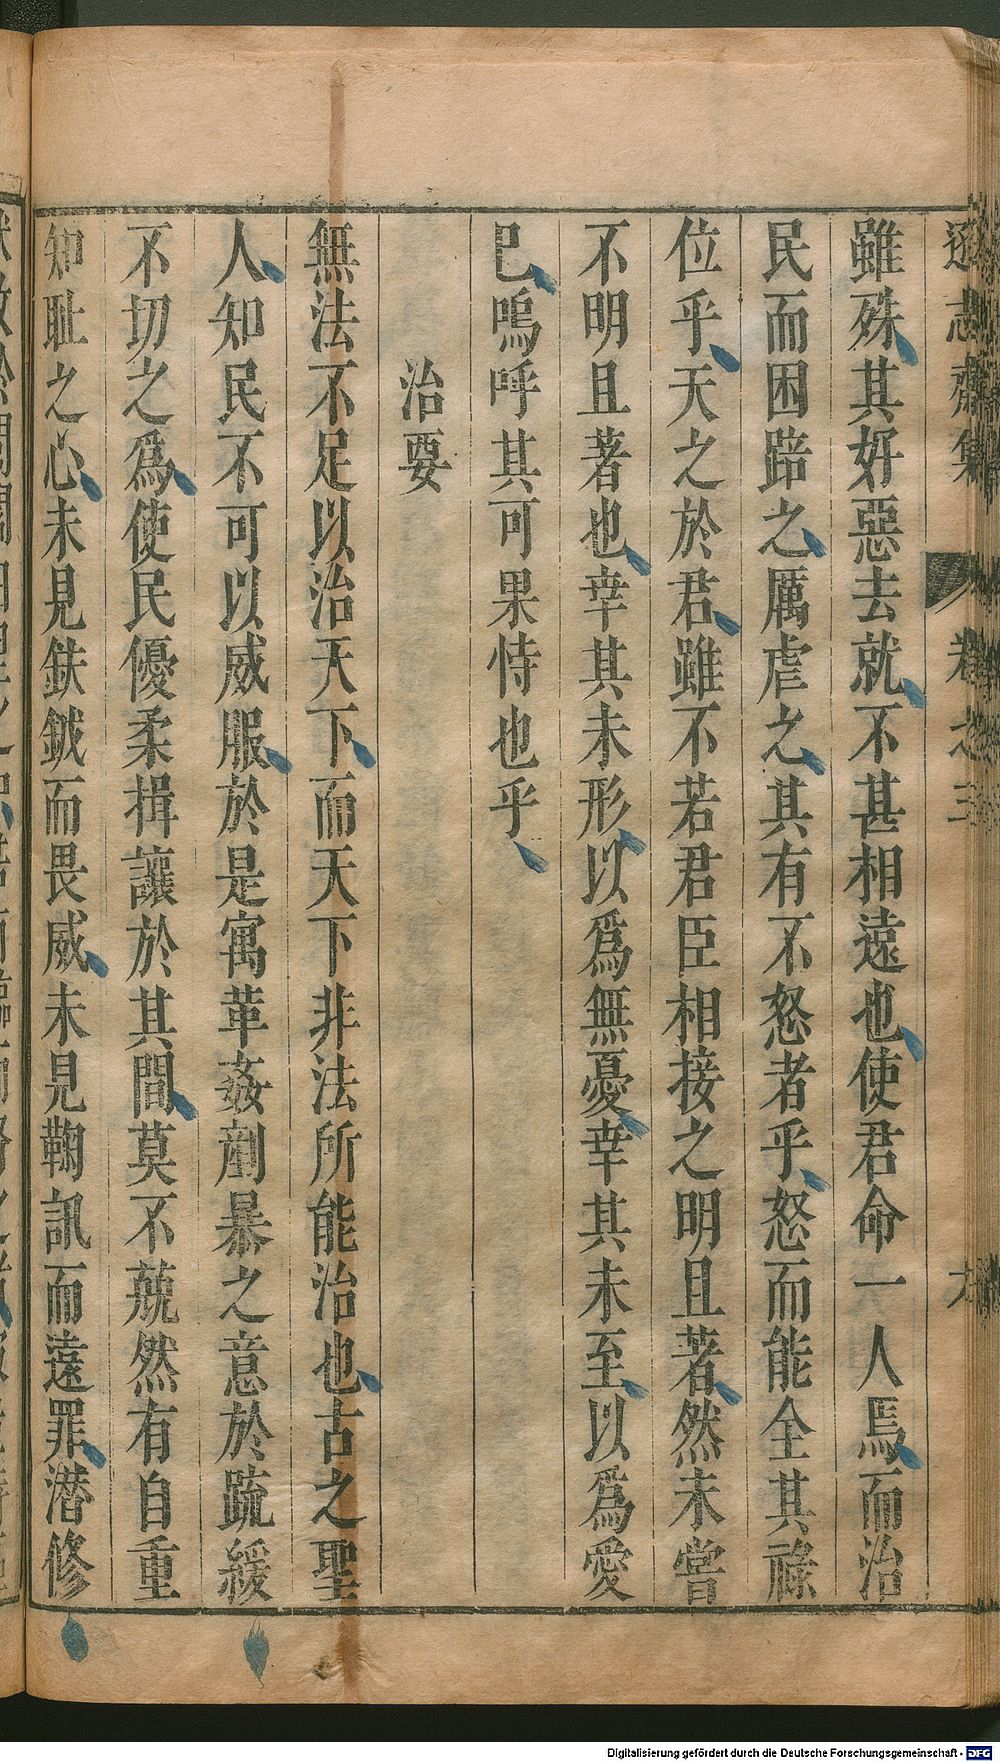 遜志齋集 卷之三 九
雖殊其好惡去就不甚相遠也使君命一人焉而治
民而困踣之厲虐之其有不怒者乎怒而能全其祿
位乎天之於君雖不若君臣相接之明且著然未嘗
不明且著也幸其未形以爲無憂幸其未至以爲愛
已嗚呼其可果恃也乎
治要
無法不足以治天下而天下非法所能治也古之聖
人知民不可以威服於是寓革姦剷暴之意於疏緩
不切之爲使民優柔揖讓於其間莫不兢然有自重
知耻之心未見鈇鉞而畏威未見鞫訊而遠罪潛修
Digitalisierung gefördert durch die Deutsche Forschungsgemeinschaft - DFG